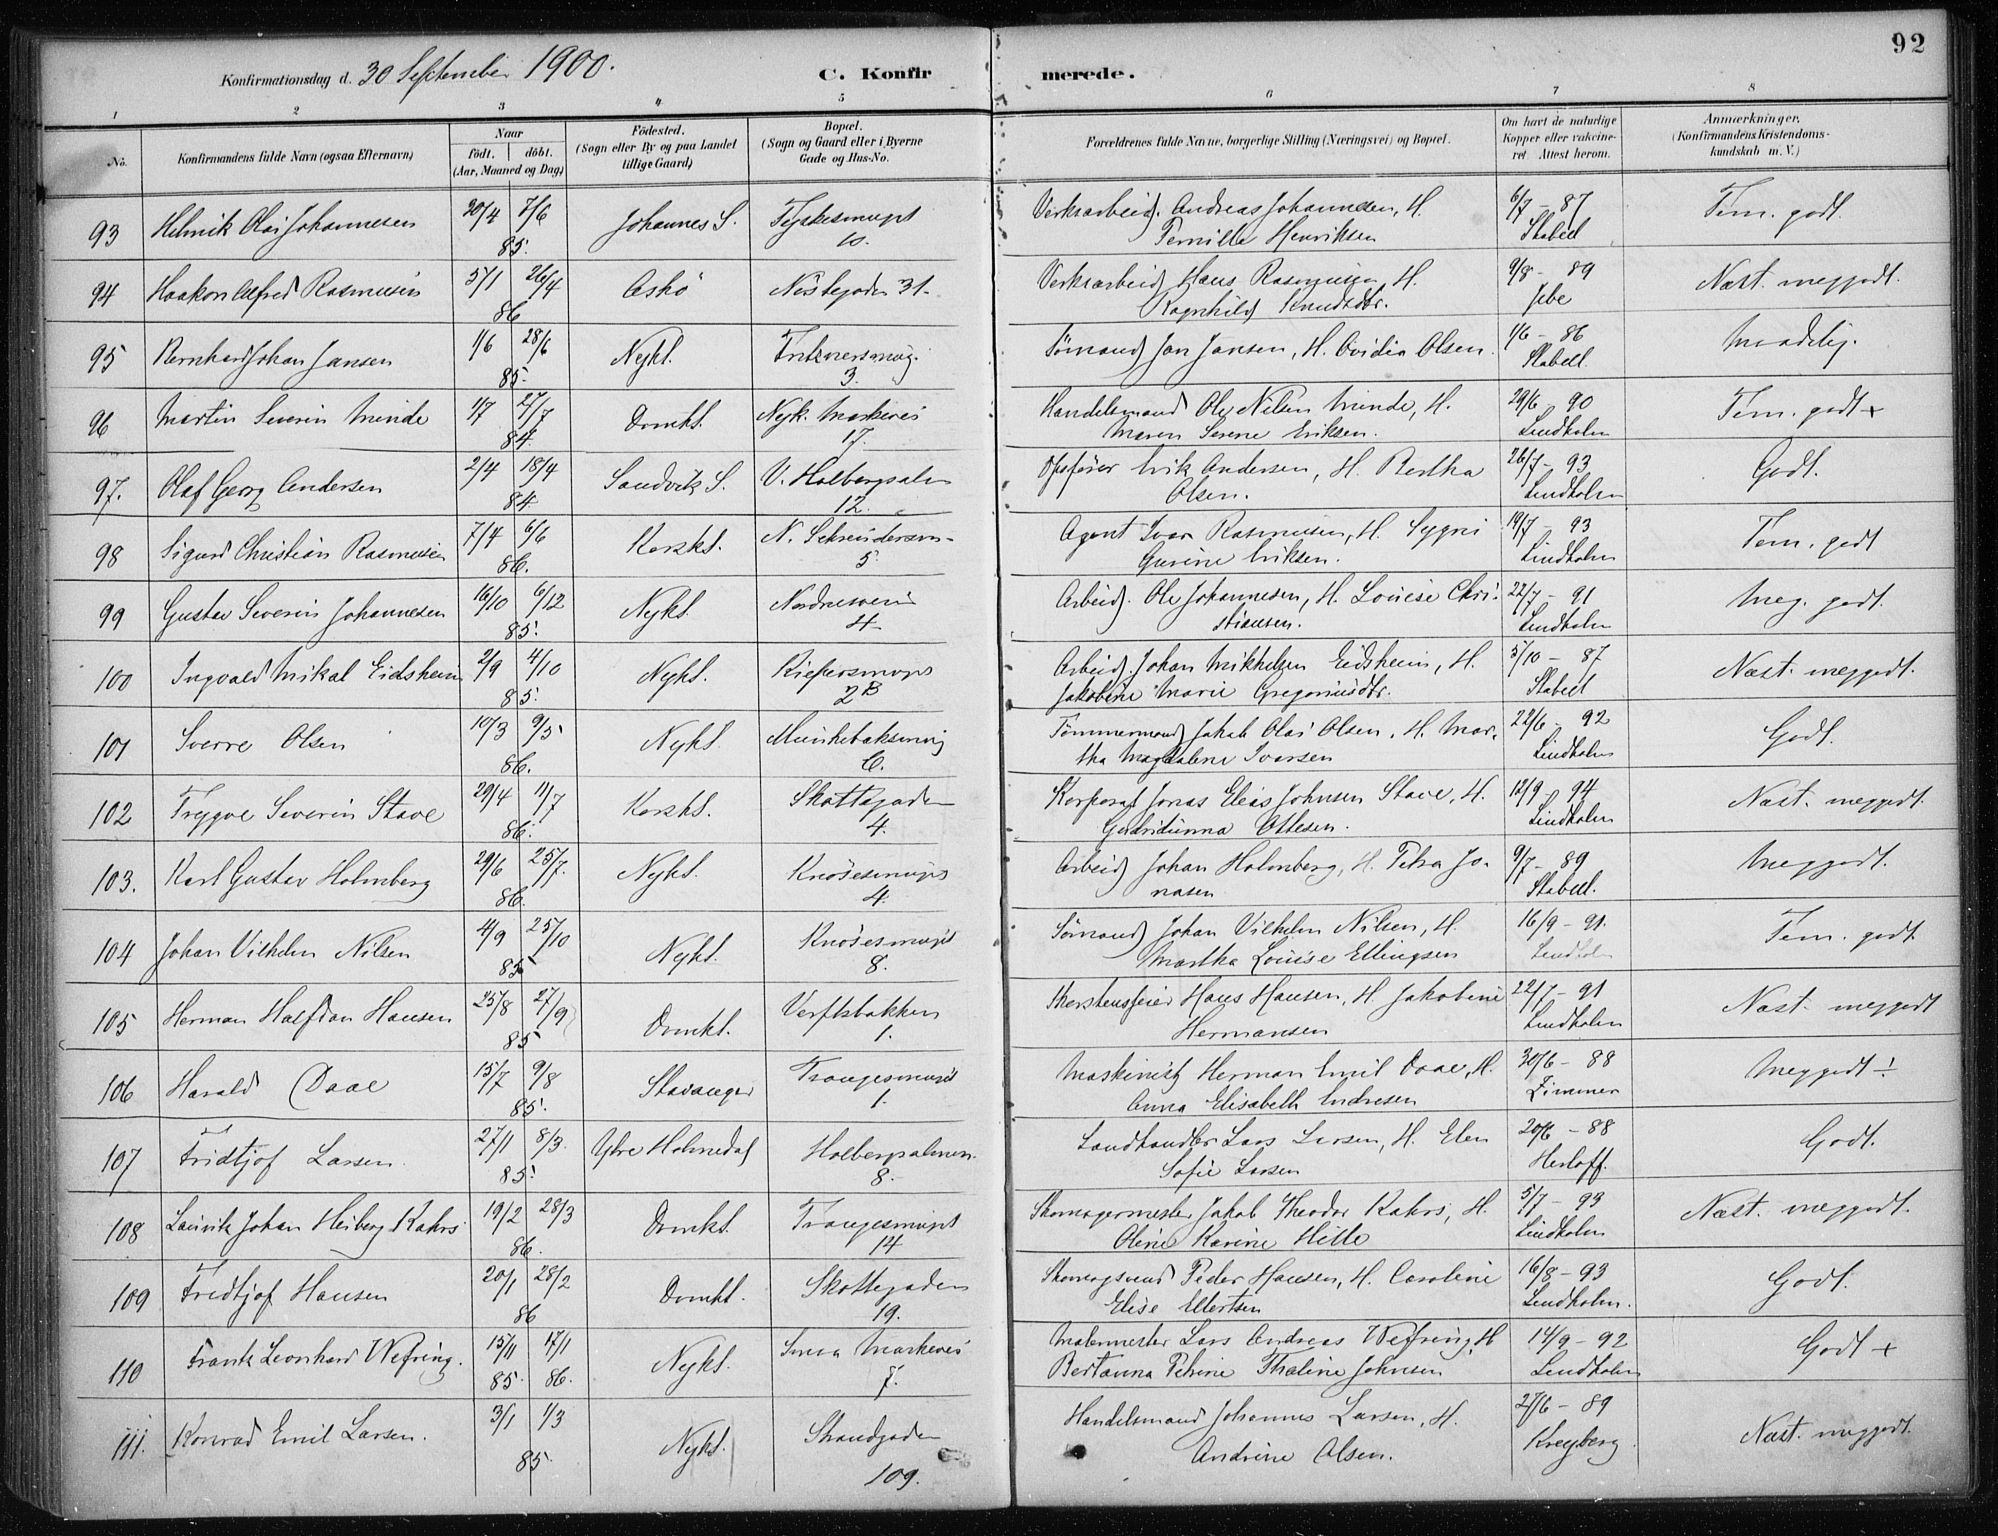 92
Konfirmationsdag d. 30 September 1900. C. Konfirmerede.
1 2 3 4 5 6 7 8
No. Konfirmandens fulde Navn (ogsaa Efternavn) Naar født. døbt. (Aar, Maaned og Dag) Fødested. (Sogn eller By og paa Landet tillige Gaard) Bopæl. (Sogn og Gaard eller i Byerne Gade og Hus-No. Forældrenes fulde Navne, borgerlige Stilling (Næringsvei) og Bopæl. Om havt de naturlige Kopper eller vakcineret Attest herom. Anmærkninger. (Konfirmandens Kristendomskundskab m. V.)
93 Helmik Olai Johannesen 20/4 7/6 Johannes S. Tydskesmuget Verksarbeid. Andreas Johannesen, H. 6/7 - 87 Tem. godt.
85. 10. Pernille Henriksen Stabell
94 Haakon Alfred Rasmussen 5/1 26/4 Askø Nøstegaden 31. Verksarbeid. Hans Rasmussen, H. 9/8 - 89 Næst. meggodt.
86 Ragnhild Knudsdtr. Jebe
95 Bernhard Johan Jansen 1/6 28/6 Nykt. Sømand Jan Jansen, H. Ovidia Olsen. 1/6 - 86 Maadelig.
85. 3. Stabell.
96 Martin Severin Minde 1/7 27/7 Domkt. Nyk. Markevei Handelsmand Ole Nilsen Minde, H. 29/6 - 90 Tem. godt +
84. 17. Maren Serene Eriksen. Lindholm
97. Olaf Georg Andersen 2/4 18/4 Sandvik S. V. Holbergsalm Opsynsm. Erik Andersen, H. Bertha 26/7 - 93 Godt.
84 12. Olsen. Lindholm
98 Sigurd Christian Rasmussen 7/4 6/6 Korskt. Agent Ivar Rasmussen, H. Sygni 19/7 - 93 Tem. godt
86. 5. Gurine Eriksen. Lindholm
99 Gustav Severin Johannesen 16/10 6/12 Nykt. Nordresvei Arbeid. Ole Johannesen, H. Louise Chri- 22/7 - 91 Meg. godt.
85. 4 stiansen. Lindholm
100 Ingvald Mikal Eidsheim 2/9 4/10 Nykt. Arbeid. Johan Mikkelsen Eidsheim, H. 3/10 - 87 Næst. meggodt.
85. 2B Jakobine Marie Gregoriusdtr. Stabell
101 Sverre Olsen 10/3 9/5 Nykt. Munkebaksmug Tømmermand Jakob Olai Olsen, H. Mar- 22/6 - 92 Godt.
86. 6. tha Magdalene Ivarsen Lindholm
102 Trygve Severin Stave 29/4 11/7 Korskt. Skottegaden Korporal Jonas Elias Johnsen Stave, H. 12/9 - 94 Næst. meggodt.
86. 4. Gudridunna Ottesen. Lindholm
103. Karl Gustav Holmberg 29/6 25/7. Nykt. Knøsesmuget Arbeid. Johan Holmberg, H. Petra Jo- 9/7 - 89 Meggodt.
86. 4. nasen Stabell.
104 Johan Vilhelm Nilsen 4/9 25/10 Nykt. Knøsesmuget Sømand Johan Vilhelm Nilsen, H. 16/9 - 91. Tem. godt
85 8. Martha Louise Ellingsen Lindholm
105 Herman Halfdan Hansen 25/8 27/9 Domkt. Verftsbakken Skorstensfeier Hans Hansen, H. Jakobine 22/7 - 91 Næst. meggodt
85 1. Hermansen Lindholm
106 Harald Daae 15/7 9/8 Stavanger Trangesmuget Maskinist Herman Emil Daae, H. 30/6 - 88 Meggodt ÷
85. 1. Anna Elisabeth Andresen Zimmer
107 Fridtjof Larsen. 27/1 8/3. Ytre Holmedal Holbergsalmen. Landhandler Lars Larsen, H. Elen 20/6 - 88 Godt.
85. 8. Sofie Larsen Herloff.
108 Lauvik Johan Heiberg Kahrs 19/2 28/3 Domkt. Trangesmuget Skomagermester Jakob Theodor Kahrs, H. 5/7 - 93 Næst. meggodt.
86. 14 Oline Karine Hille Lindholm
109 Fridtjof Hansen 20/1 28/2 Domkt. Skottegaden Skomagsvend Peder Hansen, H. Caroline 16/8 - 93 Godt.
86 19. Elise Ellertsen Lindholm.
110 Frantz Leonhard Wefring. 15/11 17/1 Nykt. Smaa Markevei Malermester Lars Andreas Wefring, H 14/9 - 92 Godt +
85. 86. 7. Bertanna Petrine Thaline Johnsen Lindholm
111. Konrad Emil Larsen. 3/1 1/3 Nykt. Strandgaden Handelsmand Johannes Larsen, H. 27/6 - 89 Næst. meggodt.
85 109. Andrine Olsen. Kreyberg